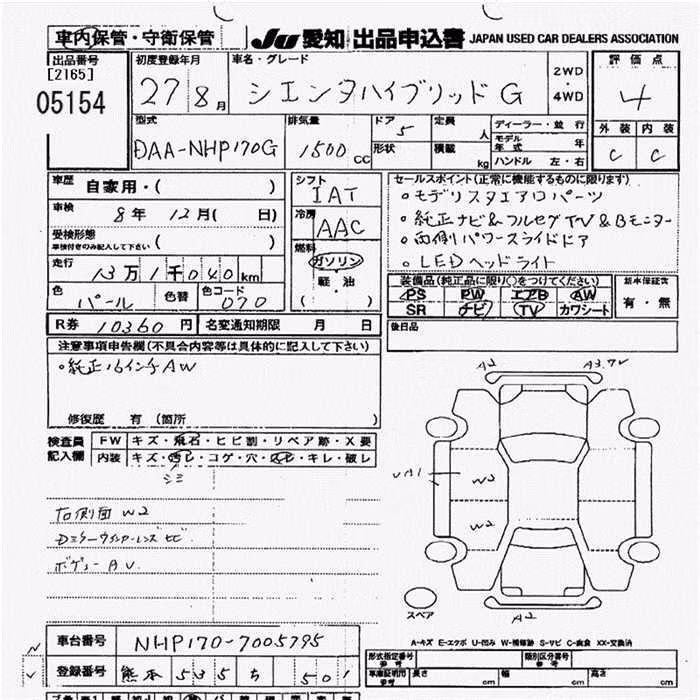 車内保管・守衛保管
JU 愛知 出品申込書 JAPAN USED CAR DEALERS ASSOCIATION
出品番号
[2165]
05154
初度登録年月
27年8月
車名・グレード
シエンタハイブリッド G
2WD
・
4WD
評価点
4
外装 内装
C C
型式
DAA-NHP170G
排気量
1500 CC
ドア 5
形状
定員 人
積載 kg
ディーラー・並行
モデル年式 年
ハンドル 左・右
車歴 自家用・( )
車検 8年 12月( 日)
受検形態
車検付きのみ記入して下さい ( )
走行 13万1千040km
色 パール
色替
色コード 070
シフト
IAT
冷房
AAC
燃料
ガソリン
軽・油
( )
セールスポイント(正常に機能するものに限ります)
○モデリスタエアロパーツ
○純正ナビ&フルセグTV&Bモニター
○両側パワースライドドア
○LEDヘッドライト
装備品(純正品に限り○をつけてください)
PS PW エアB AW
SR ナビ TV カワシート
新車保証書
有・無
R券 10360 円
名変通知期限 月 日
後日品
注意事項申告欄(不具合内容等は具体的に記入して下さい)
○純正16インチAW
修復歴 有 (箇所 )
検査員
記入欄
FW キズ・飛石・ヒビ割・リペア跡・X要
内装 キズ・汚レ・コゲ・穴・スレ・キレ・破レ
シミ
右側面 W2
Dミラーウインカーレンズ ヒビ
ボデー AU
A2
A3.7V
W2
W2
スペア
A2
A-キズ E-エクボ U-凹み W-補修跡 S-サビ C-腐食 XX-交換済
車台番号 NHP170-7005795
登録番号 熊本 535 ち 501
形式指定番号
参考
類別区分番号
参考
車庫証明用
参考
長さ cm 幅 cm 高さ cm